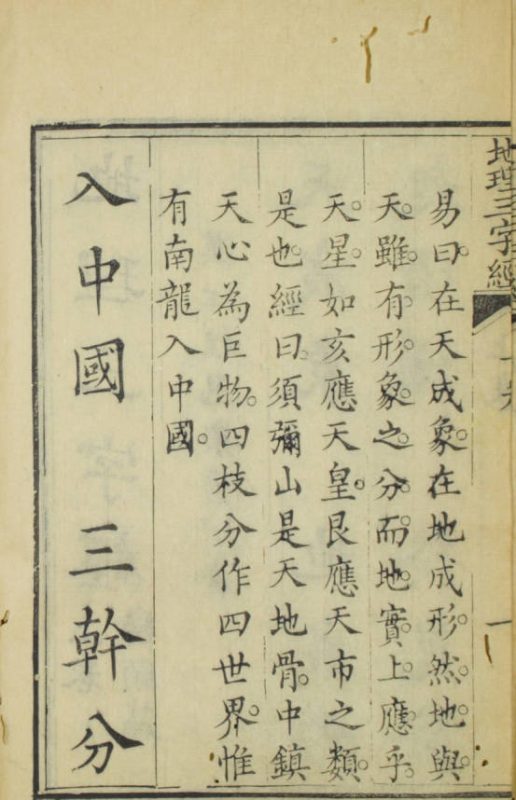 地理三字經
一
易曰在天成象在地成形然地與
天雖有形象之分而地實上應乎
天星如亥應天皇艮應天市之類
是也經曰須彌山是天地骨中鎮
天心為巨物四枝分作四世界惟
有南龍入中國
入中國 三幹分